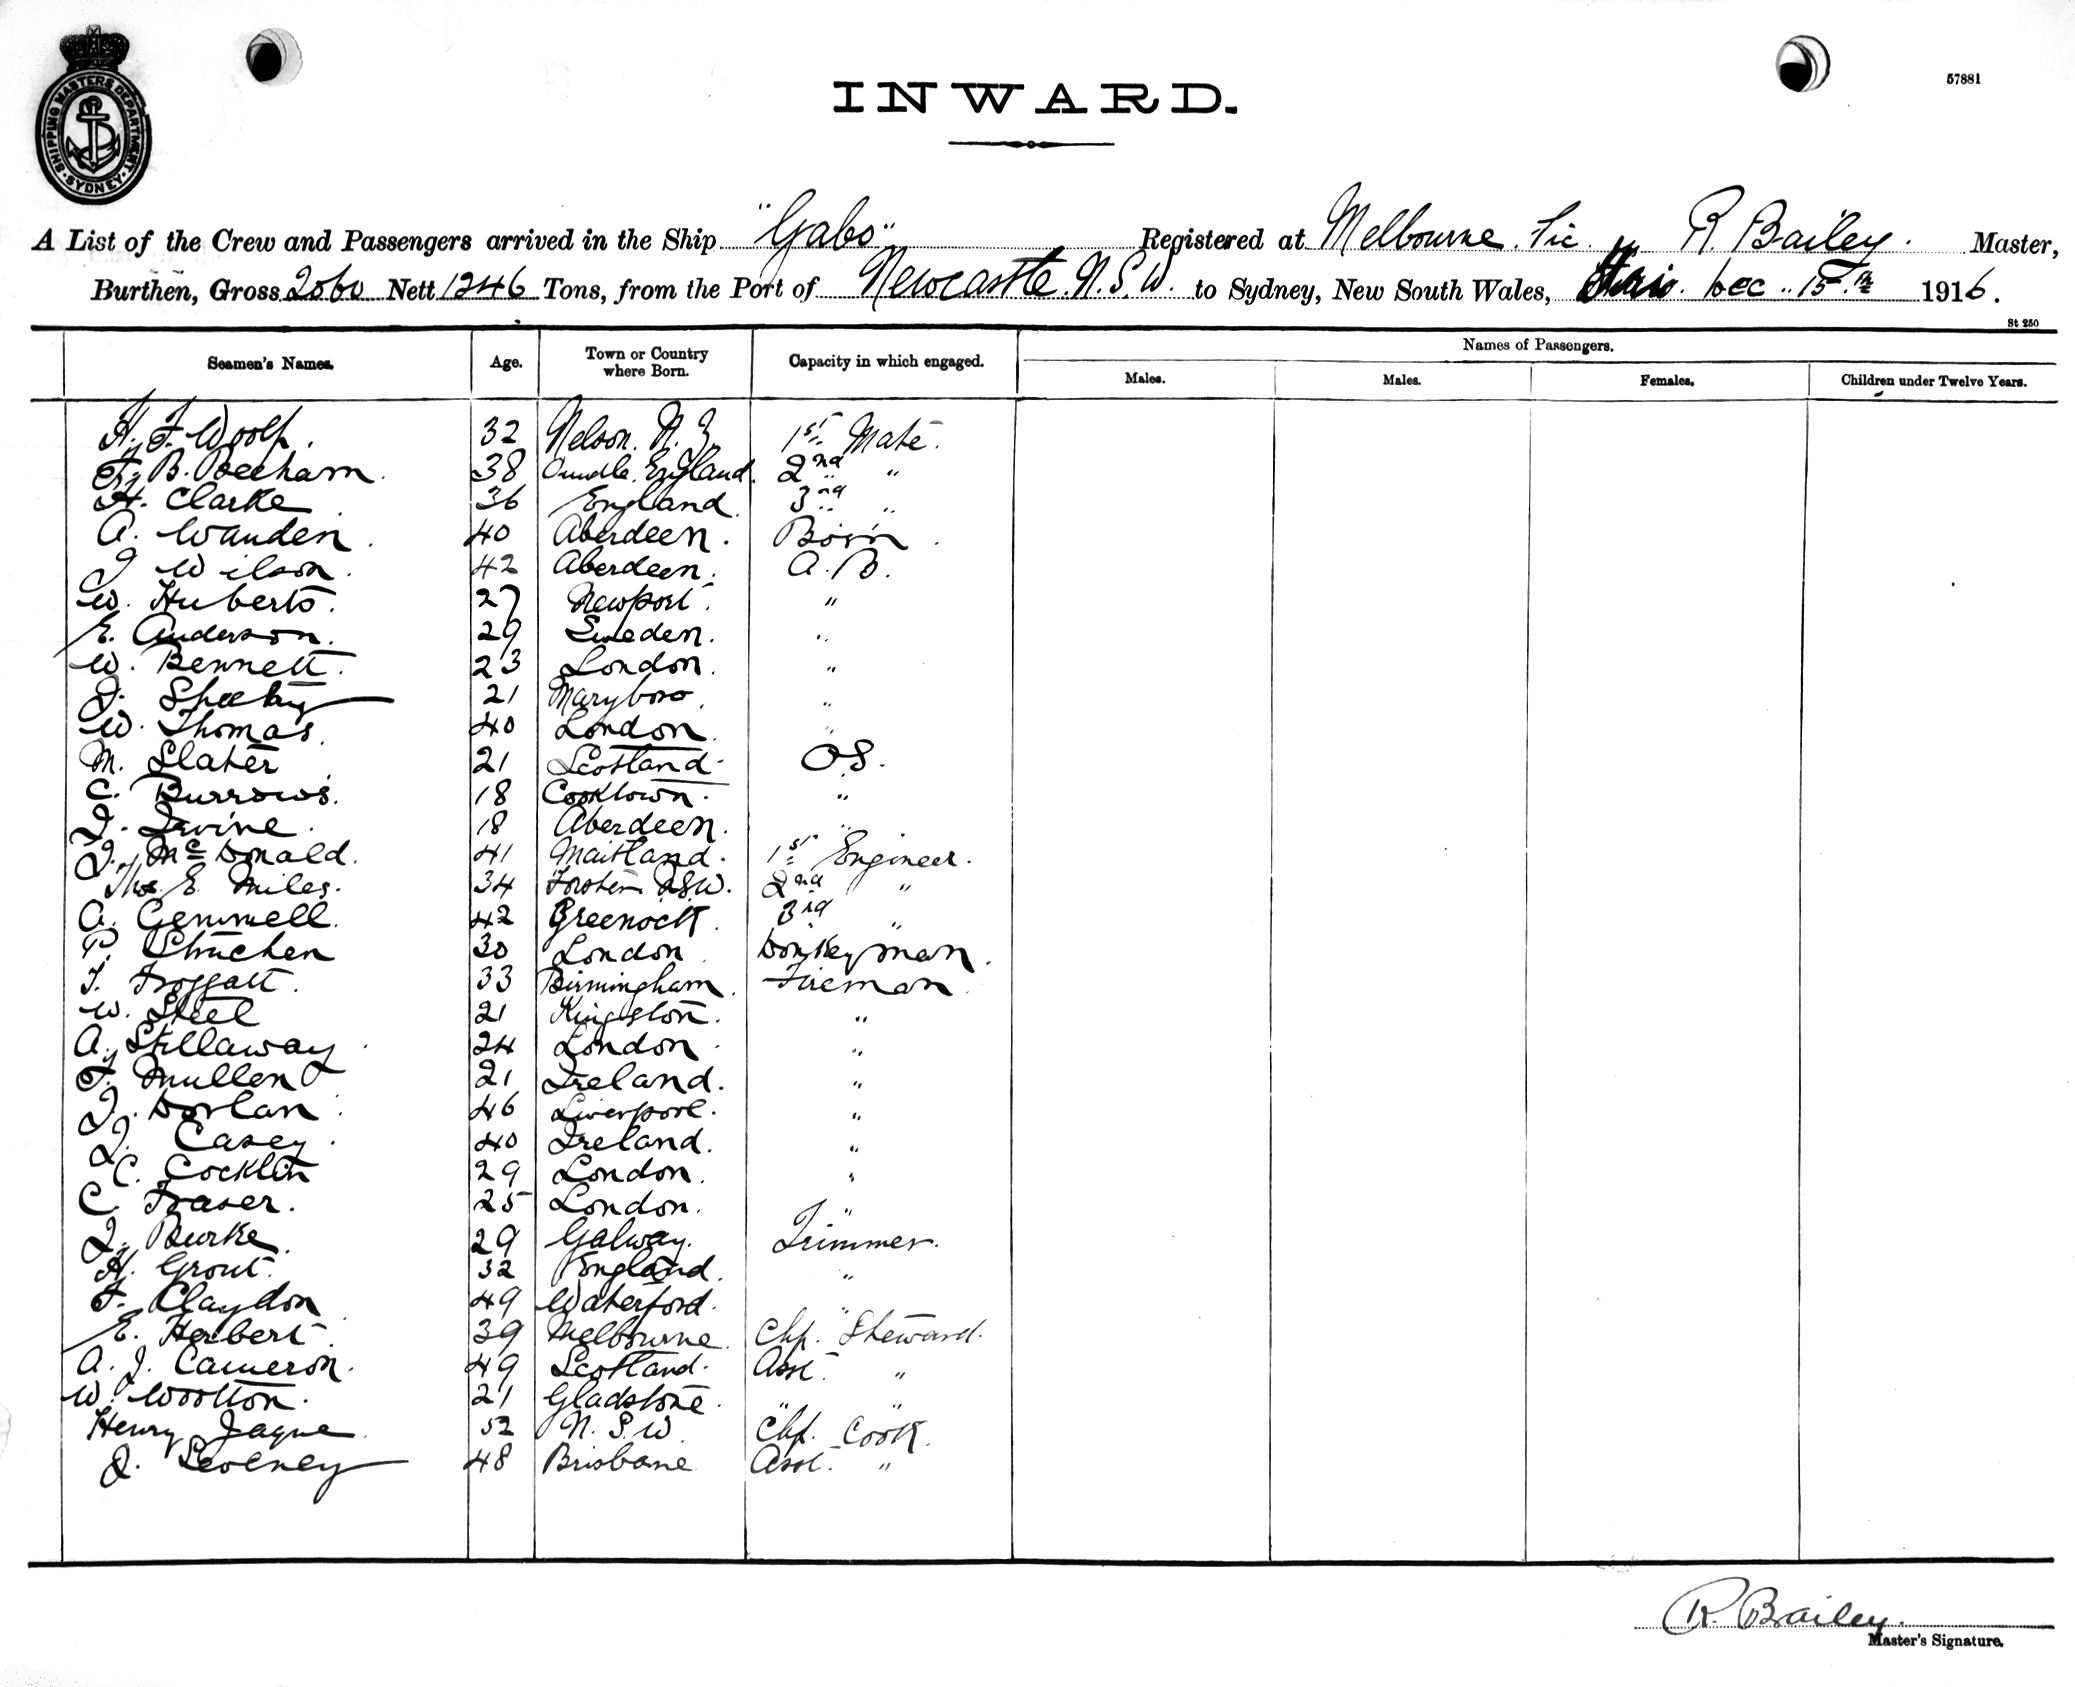 SHIPPING MASTERS DEPARTMENT · SYDNEY ·
57881
INWARD.
A List of the Crew and Passengers arrived in the Ship "Gabo" Registered at Melbourne. Vic. R. Bailey. Master,
Burthen, Gross 2060 Nett 1246 Tons, from the Port of Newcastle. N.S.W. to Sydney, New South Wales, Dec. 15th 1916.
St 250
Seamen's Names. Age. Town or Country where Born. Capacity in which engaged. Names of Passengers.
Males. Males. Females. Children under Twelve Years.
H. F. Woolf. 32 Nelson. N. Z. 1st Mate.
F. B. Beecham. 38 Oundle. England. 2nd "
H. Clarke 36 England. 3rd "
A. Wauden. 40 Aberdeen. Bosn.
J. Wilson. 42 Aberdeen. A. B.
W. Huberts. 27 Newport. "
E. Anderson. 29 Sweden. "
W. Bennett. 23 London. "
J. Sheehy 21 Maryboro. "
W. Thomas. 40 London. "
M. Slater 21 Scotland. O.S.
C. Burrows. 18 Cooktown. "
J. Irvine. 18 Aberdeen. "
J. McDonald. 41 Maitland. 1st Engineer.
Thos. E. Miles. 34 Forster N.S.W. 2nd "
A. Gemmell. 42 Greenock. 3rd "
P. 30 London. Donkeyman.
T. Froggatt. 33 Birmingham. Fireman.
W. Steel 21 Kingston. "
A. Stellaway. 24 London. "
F. Mullen 21 Ireland. "
J. Dorlan. 46 Liverpool. "
J. Casey. 40 Ireland. "
C. Cocklin 29 London. "
C. Fraser. 25 London. "
J. Burke. 29 Galway. Trimmer.
H. Grout. 32 England. "
F. Claydon 49 Waterford. "
E. Herbert. 39 Melbourne. Chf. Steward.
A. J. Cameron. 49 Scotland. Asst. "
W. Wootton. 21 Gladstone. " "
Henry Jaque 52 N. S. W. Chf. Cook.
J. 48 Brisbane Asst. "
R. Bailey.
Master's Signature.